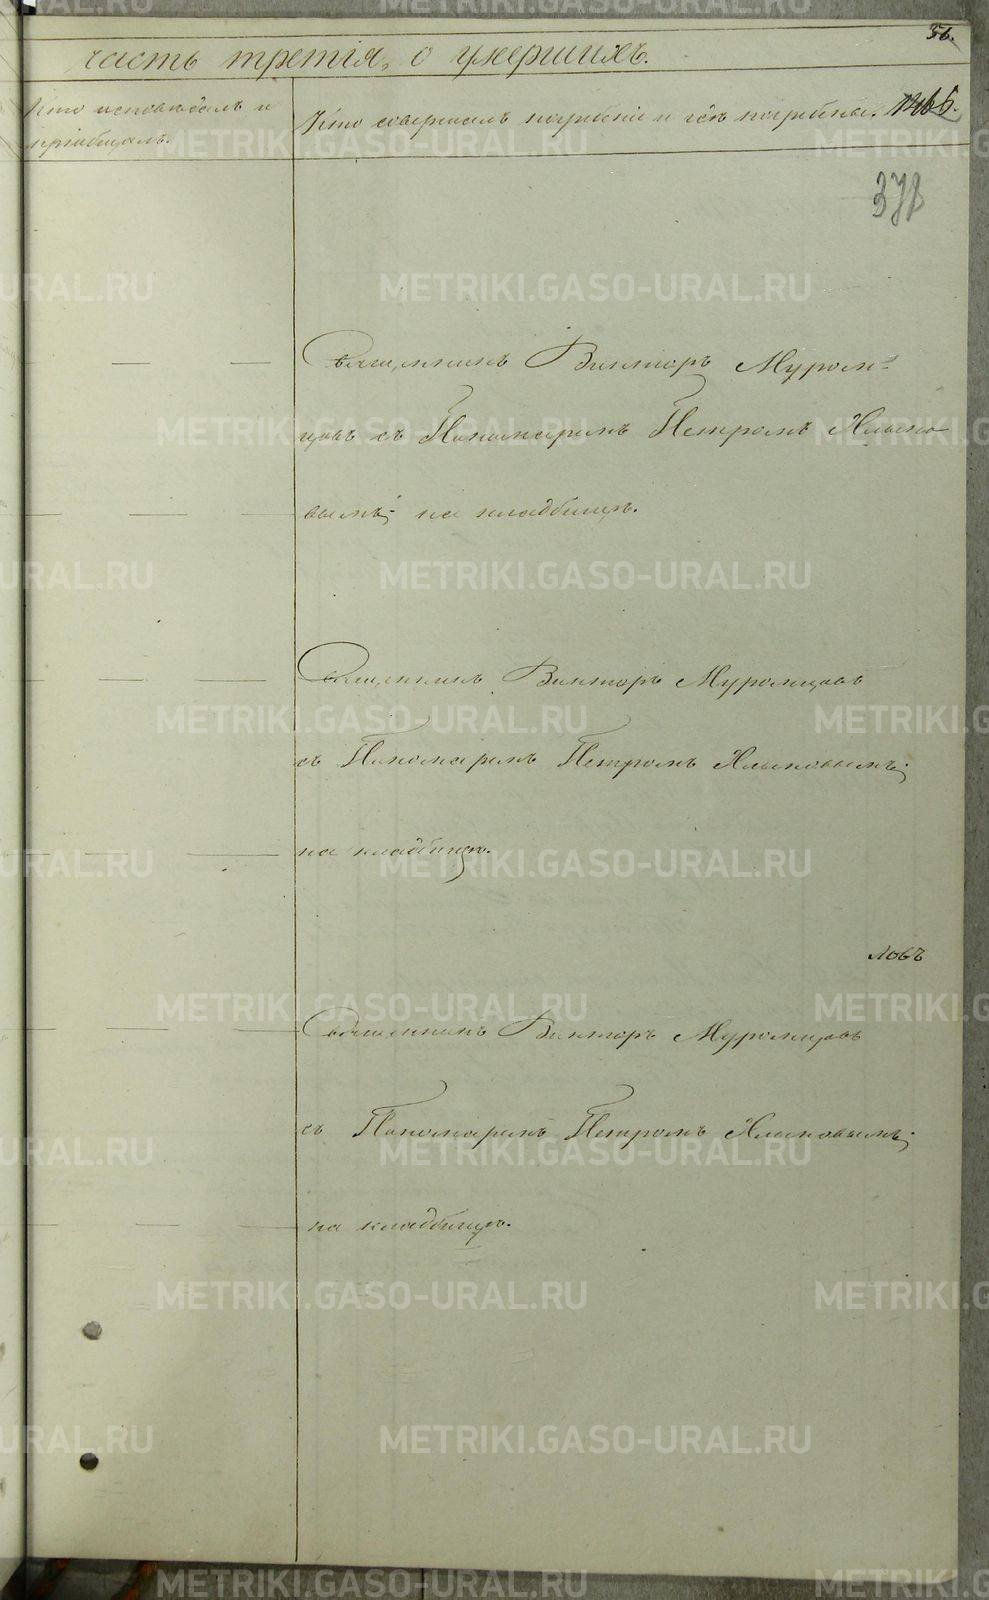 36.
часть третія, о умершихъ.
Кто исповѣдалъ и
пріобщалъ.
Кто совершалъ погребеніе и гдѣ погребены.
378
Священникъ Викторъ Муром-
цовъ съ Пономаремъ Петромъ Клыко
вымъ; на кладбищѣ.
Священникъ Викторъ Муромцовъ
съ Пономаремъ Петромъ Клыковымъ;
на кладбищѣ.
ловъ
Священникъ Викторъ Муромцовъ
съ Пономаремъ Петромъ Клыковымъ;
на кладбищѣ.
METRIKI.GASO-URAL.RU